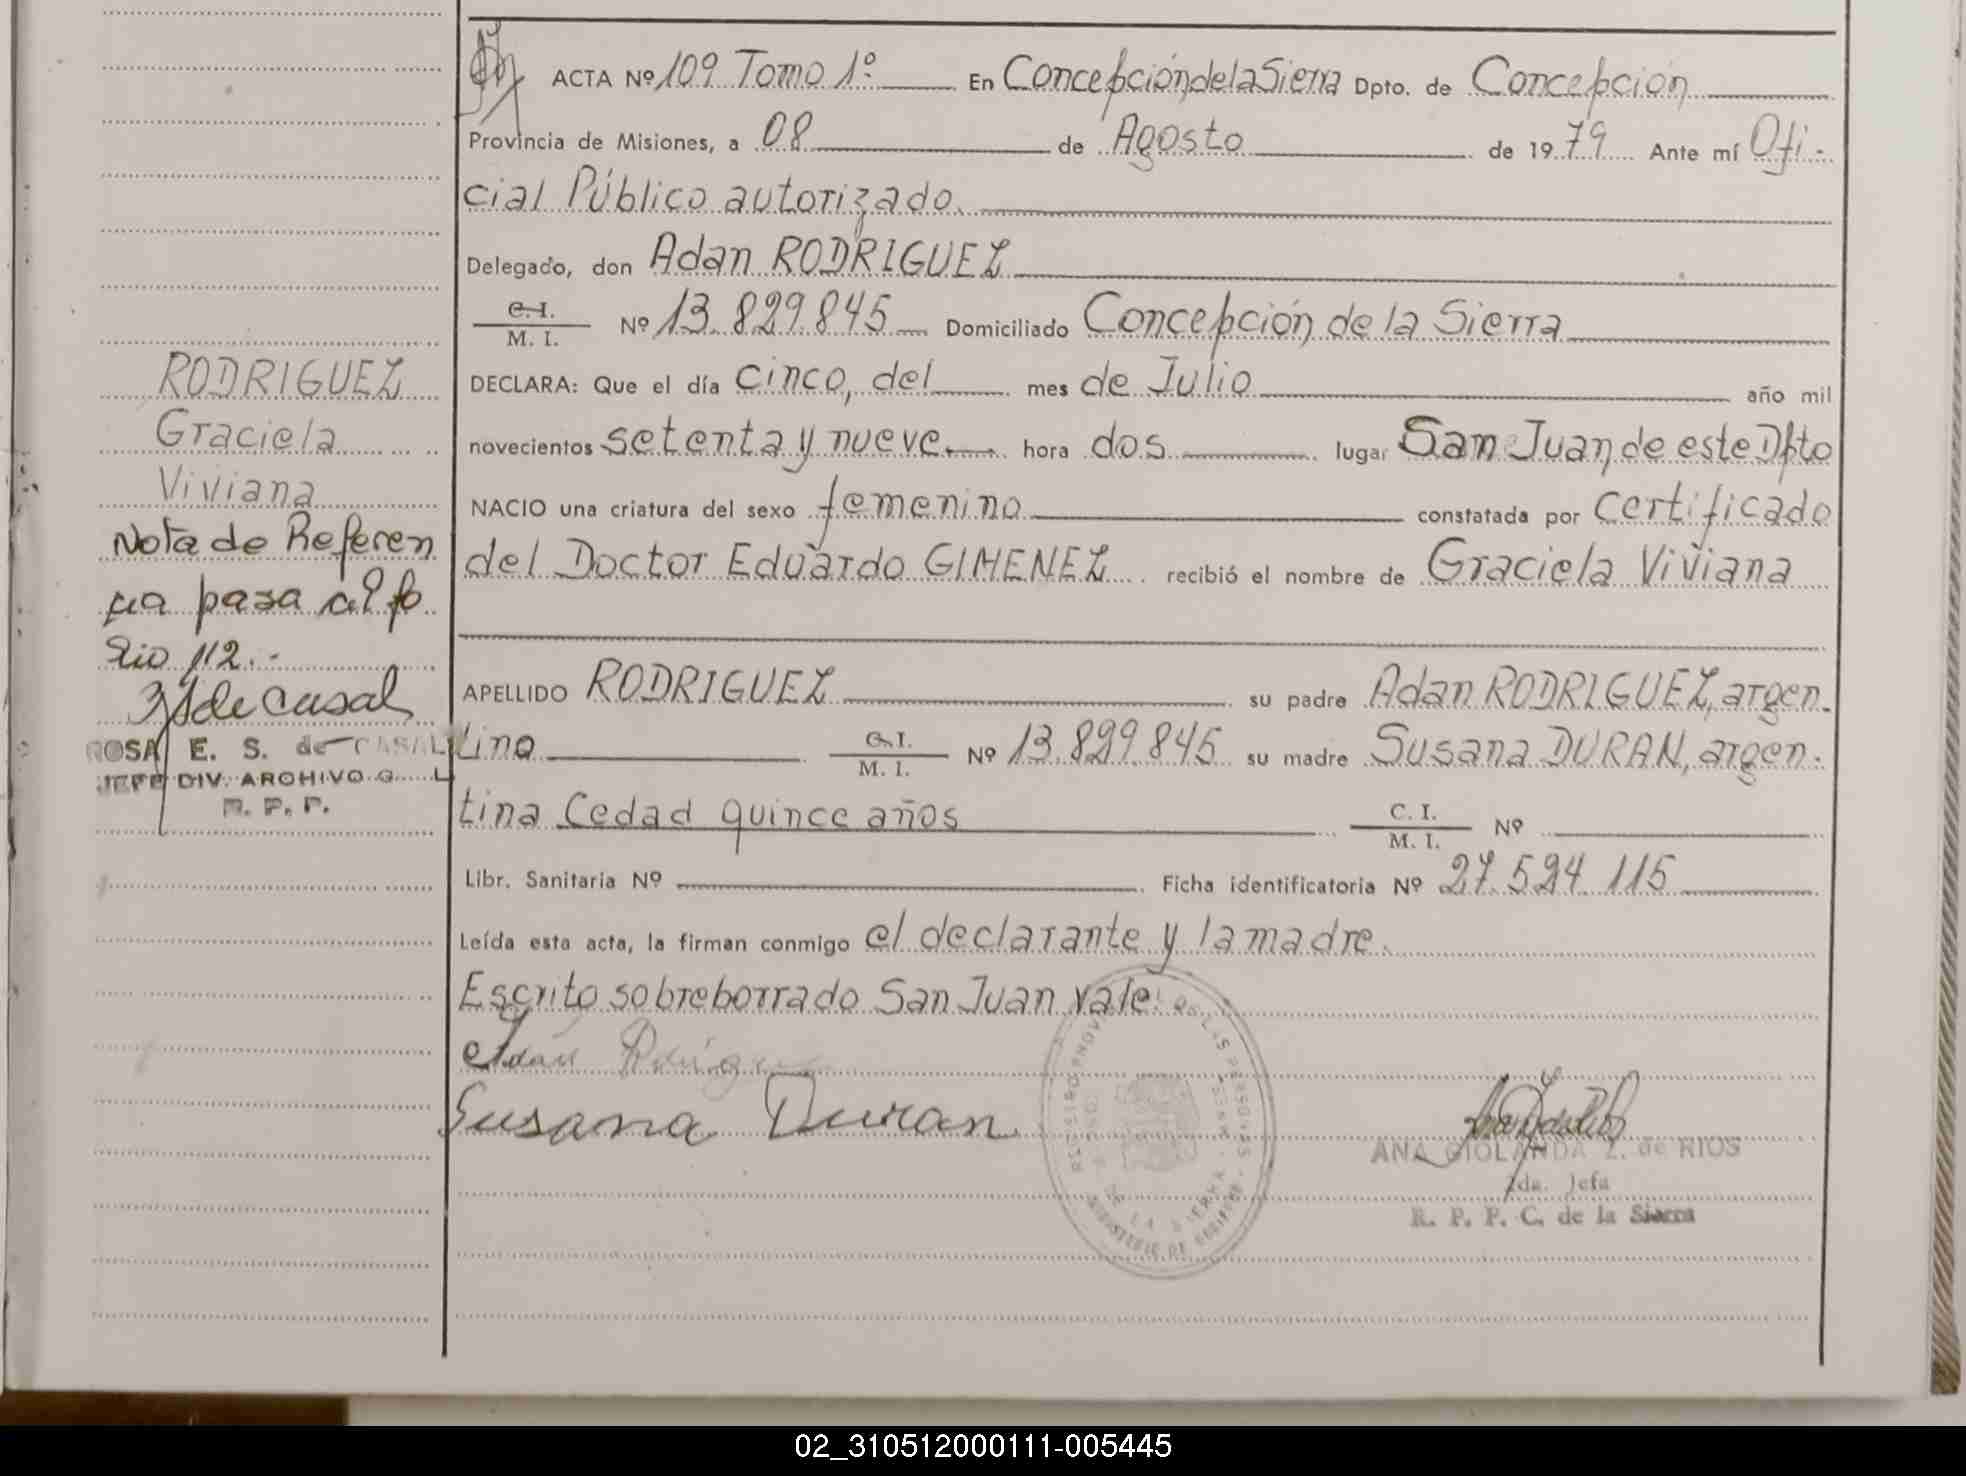 ACTA Nº 109 Tomo 1º En Concepción de la Sierra Dpto. de Concepción
Provincia de Misiones, a 08 de Agosto de 1979 Ante mí Ofi-
cial Público autorizado.
Delegado, don Adan RODRIGUEZ
C. I.
M. I. Nº 13.829.845 Domiciliado Concepción de la Sierra
DECLARA: Que el día cinco, del mes de Julio año mil
novecientos setenta y nueve hora dos lugar San Juan de este Dpto
NACIO una criatura del sexo femenino constatada por certificado
del Doctor Eduardo GIMENEZ recibió el nombre de Graciela Viviana
APELLIDO RODRIGUEZ su padre Adan RODRIGUEZ, argen-
tino C. I. M. I. Nº 13.829.845 su madre Susana DURAN, argen-
tina Cedad quince años C. I. M. I. Nº
Libr. Sanitaria Nº Ficha identificatoria Nº 27.524.115
Leída esta acta, la firman conmigo el declarante y la madre.
Escrito sobreborrado San Juan vale.
Adan
Susana Duran
ANA GIOLANDA Z. de RIOS
2da. Jefa
R. P. P. C. de la Sierra
RODRIGUEZ
Graciela
Viviana
Nota de Referen
cia pasa al fo
lio 112.-
de Casal
ROSA E. S. de CASAL
JEFE DIV. ARCHIVO G L
R. P. P.
02_310512000111-005445